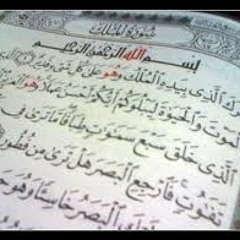 سُورَةُ الْمُلْكِ
بِسْمِ اللَّهِ الرَّحْمَٰنِ الرَّحِيمِ
رَكَ الَّذِي بِيَدِهِ الْمُلْكُ وَهُوَ عَلَىٰ كُلِّ شَيْءٍ قَدِيرٌ
الْمَوْتَ وَالْحَيَاةَ لِيَبْلُوَكُمْ أَيُّكُمْ أَحْسَنُ عَمَلًا وَهُوَ
الَّذِي خَلَقَ سَبْعَ سَمَاوَاتٍ طِبَاقًا مَا تَرَىٰ فِي
تَفَاوُتٍ فَارْجِعِ الْبَصَرَ هَلْ تَرَىٰ مِنْ فُطُورٍ
الْبَصَرُ خَاسِئًا وَهُوَ